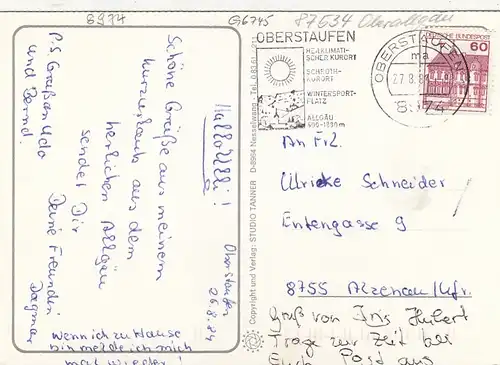 8974
G6745
87634 Oberallgäu
OBERSTAUFEN
HEILKLIMATI-
SCHER KURORT
SCHROTH-
KURORT
WINTERSPORT-
PLATZ
ALLGÄU
OBERSTAUFEN
ma
27.8.8
8974
DEUTSCHE BUNDESPOST
60
Hallo Ulli!
Oberstaufen
26.8.84
Schöne Grüße aus meinem
Kurzurlaub aus dem
herlichen Allgäu
sendet Dir
Deine Freundin
Dagmar
P.S Grüß an Udo
und Bernd.
Wenn ich zu Hause
bin melde ich mich
mal wieder!
Copyright und Verlag: STUDIO TANNER D-8964 Nesselwang - Tel. 0 83 61
An Frl.
Ulricke Schneider
Entengasse 9
8755 Alzenau/Ufr.
Gruß von Iris Hubert
Trage zur Zeit bei
Euch Post aus